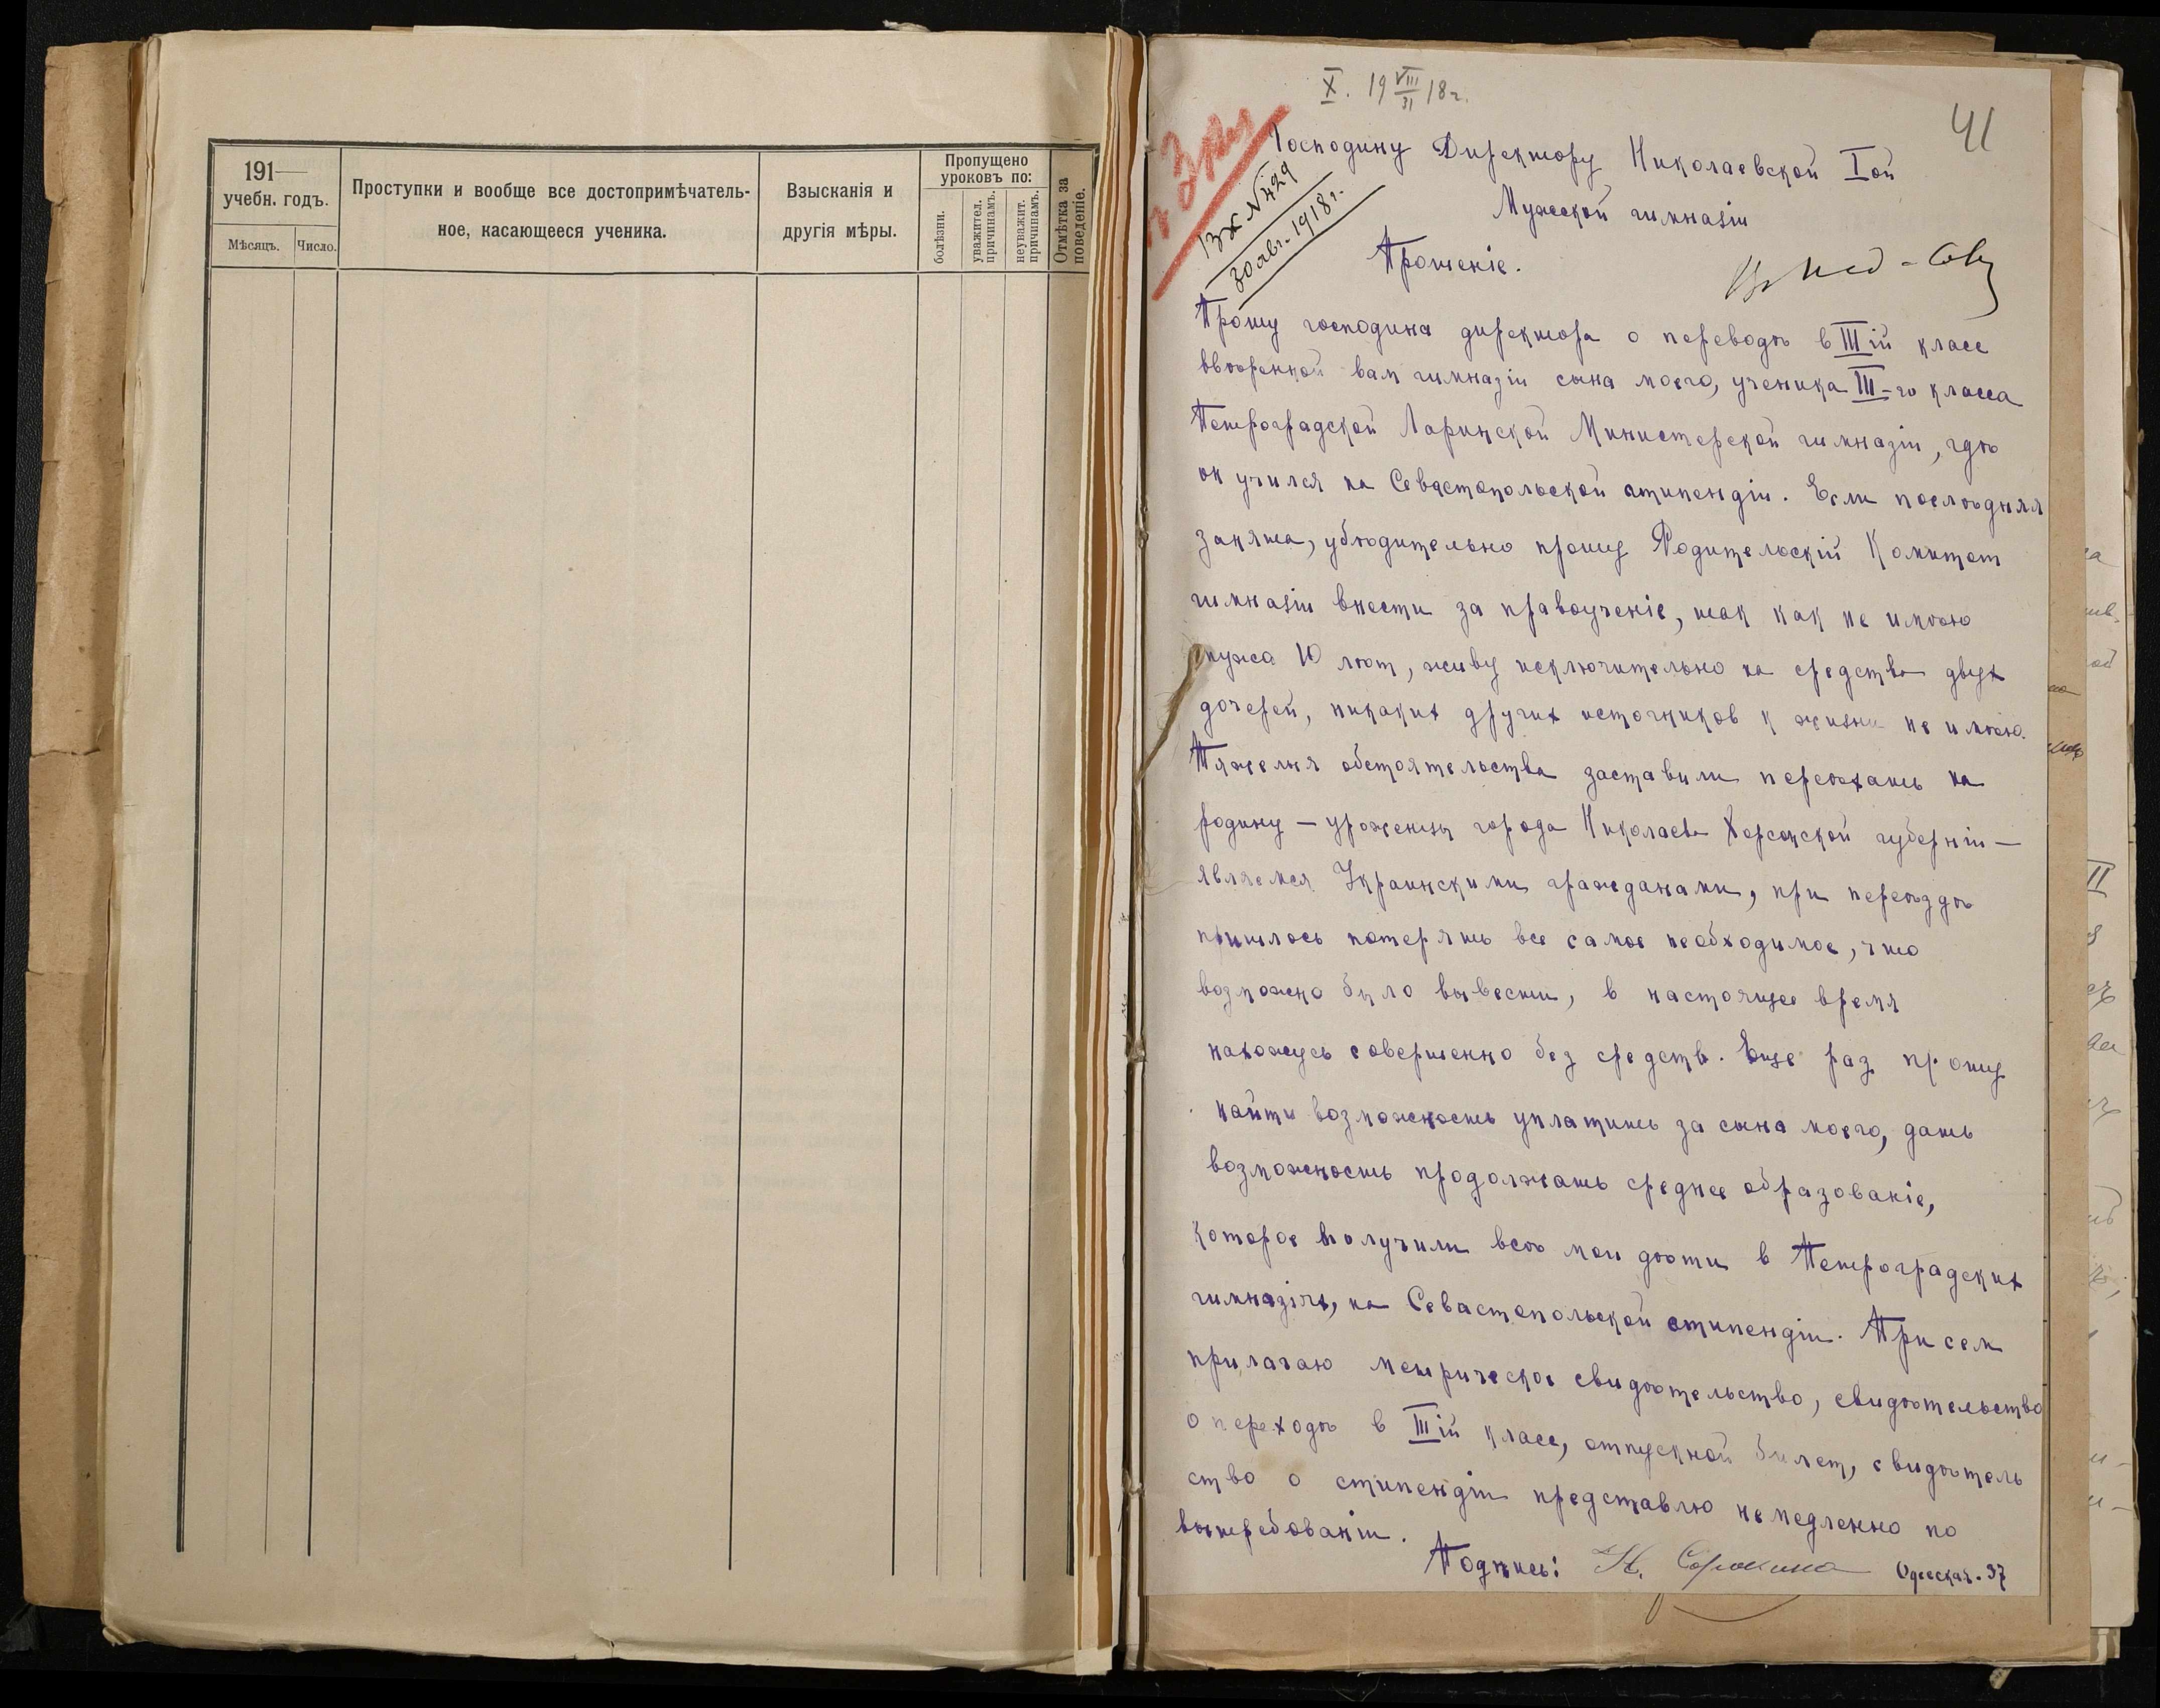 191—
учебн. годъ.
Мѣсяцъ.
Число.
Проступки и вообще все достопримѣчатель-
ное, касающееся ученика.
Взысканія и
другія мѣры.
Пропущено
уроковъ по:
болѣзни.
уважител.
причинамъ.
неуважит.
причинамъ.
Отмѣтка за
поведеніе.
X. 19 VIII/31 18 г.
41
Вх. № 429
30 авг. 1918 г.
Господину Директору Николаевской I ой
Мужской гимназіи
Прошеніе.
Прошу господина директора о переводѣ в III ій класс
ввѣренной вам гимназіи сына моего, ученика III-го класса
Петроградской Ларинской Министерской гимназіи, гдѣ
он учился на Севастопольской стипендіи. Если послѣдняя
занята, убѣдительно прошу Родительскій Комитет
гимназіи внести за правоученіе, так как не имѣю
мужа 10 лѣт, живу исключительно на средства двух
дочерей, никаких других источников к жизни не имѣю.
Тяжелыя обстоятельства заставили переѣхать на
родину — уроженцы города Николаева Херсонской губерніи —
являемся Украинскими гражданами, при переѣздѣ
пришлось потерять все самое необходимое, что
возможно было вывезти, в настоящее время
нахожусь совершенно без средств. Еще раз прошу
найти возможность уплатить за сына моего, дать
возможность продолжать среднее образованіе,
которое получили всѣ мои дѣти в Петроградских
гимназіях, на Севастопольской стипендіи. При сем
прилагаю метрическое свидѣтельство, свидѣтельство
о переходѣ в III ій класс, отпускной билет, свидѣтель
ство о стипендіи представлю немедленно по
вытребованіи.
Подпись: Н. Сорокина Одесская. 37